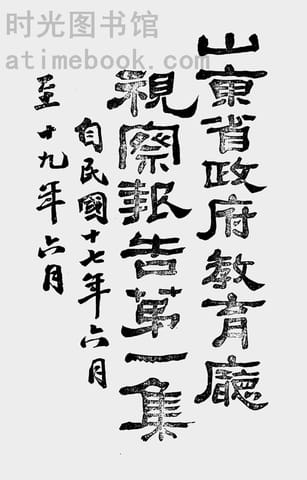 时光图书馆
atimebook.com
山東省政府教育廳
視察報告第一集
自民國十七年六月
至十九年六月